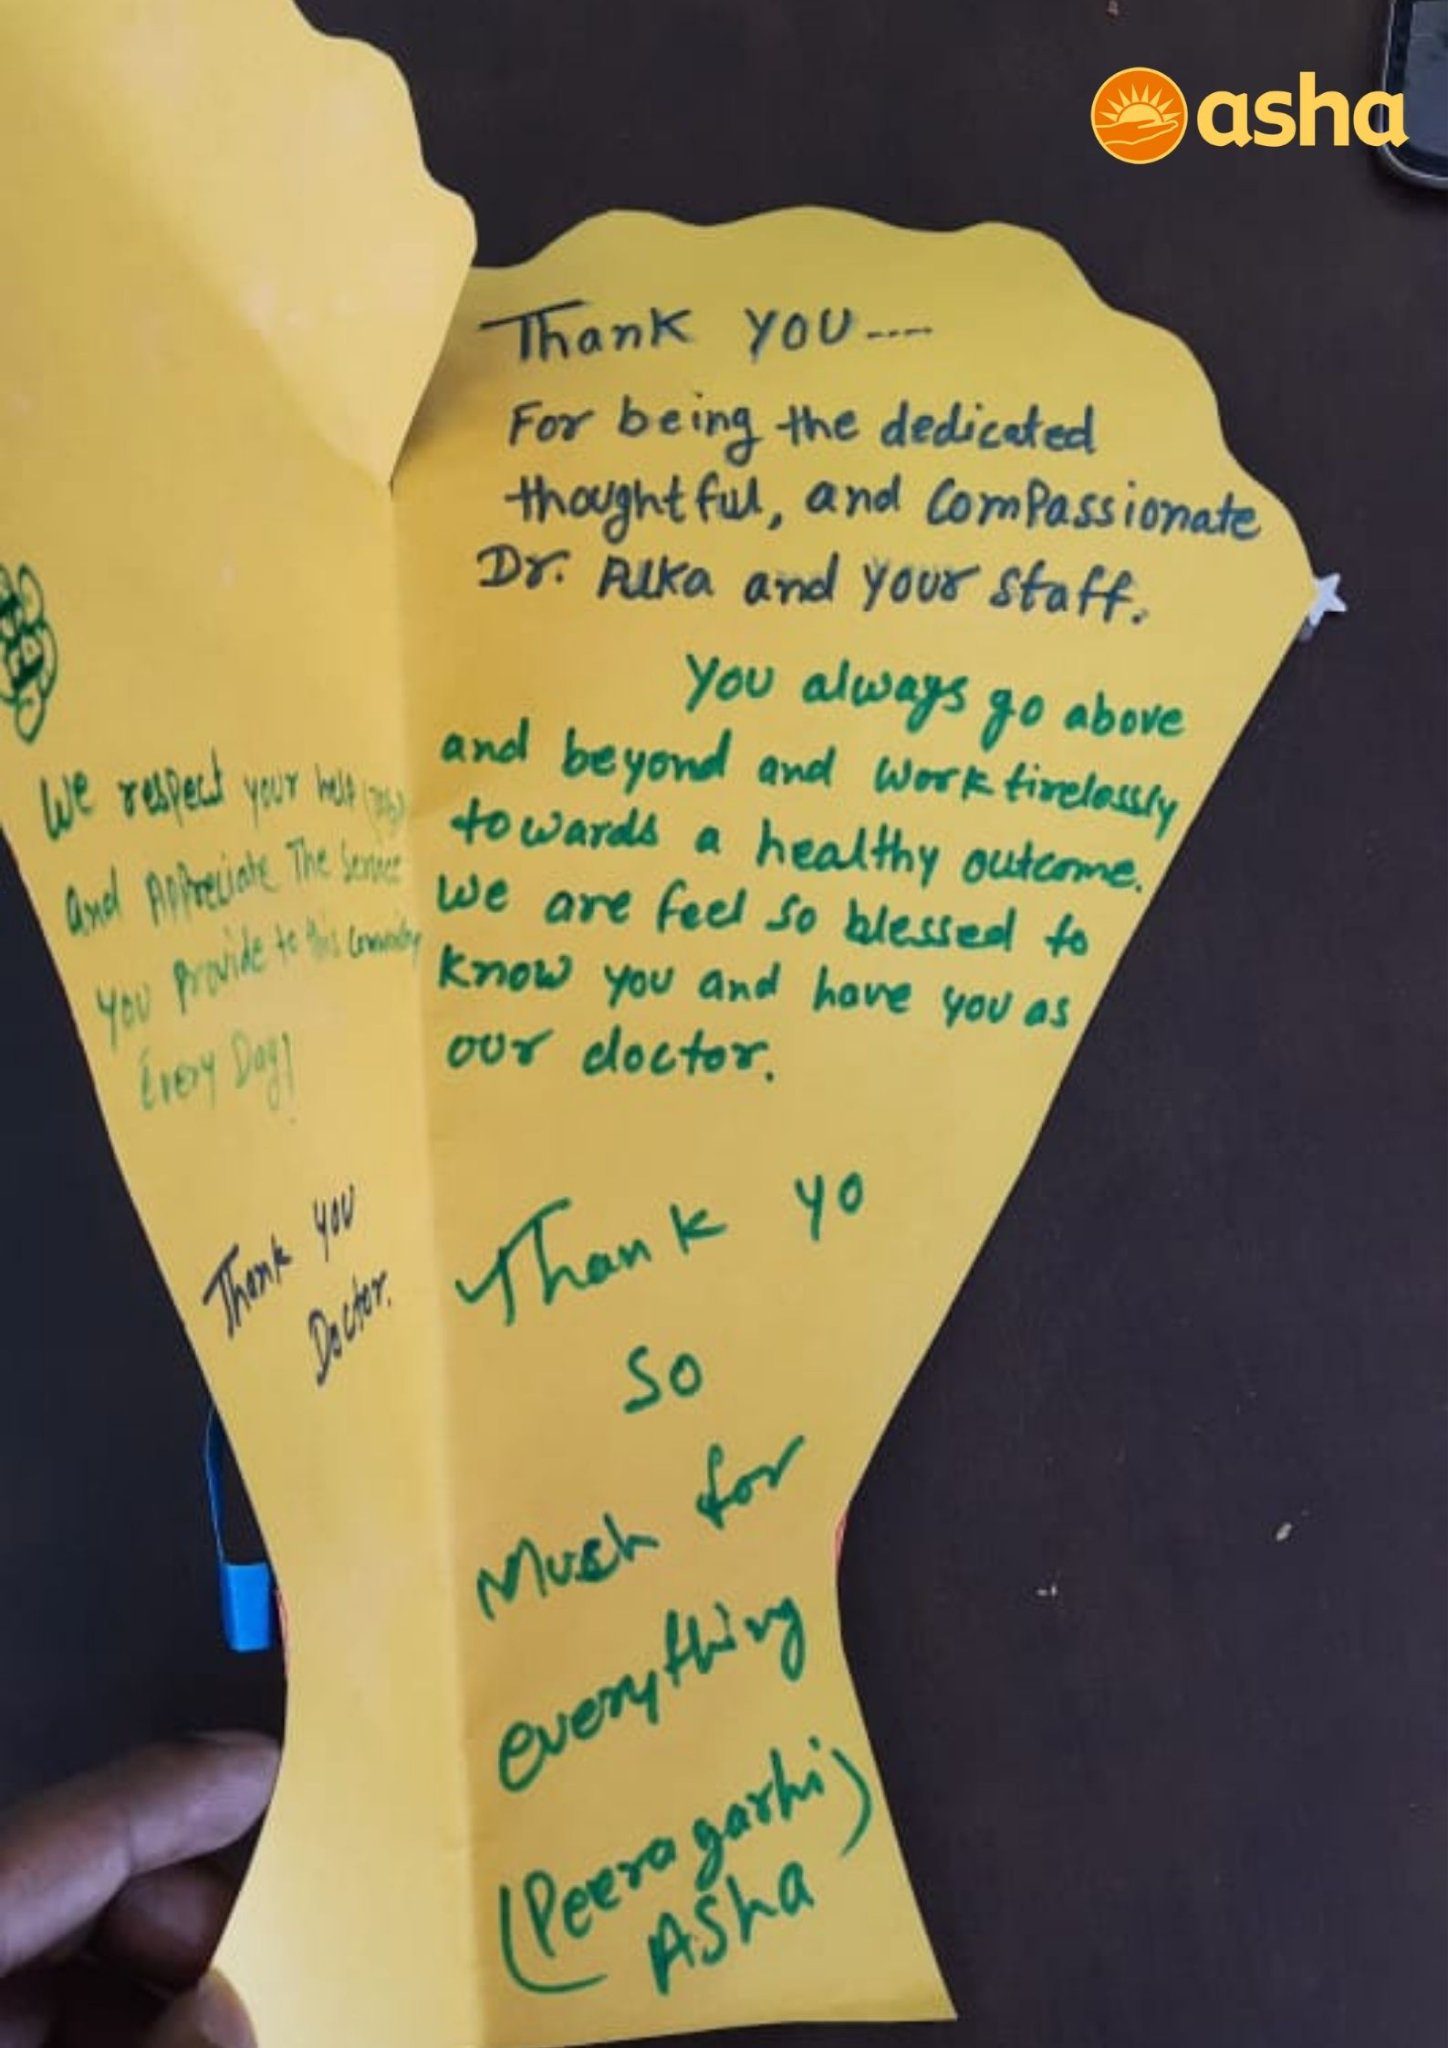 asha
We respect your help
and Appreciate The Service
you provide to this Community
Every Day!
Thank you
Doctor.
Thank you----
For being the dedicated
thoughtful, and compassionate
Dr. Alka and your staff.
You always go above
and beyond and work tirelessly
towards a healthy outcome.
We are feel so blessed to
know you and have you as
our doctor.
Thank yo
so
Much for
everything
(Peeragarhi)
Asha